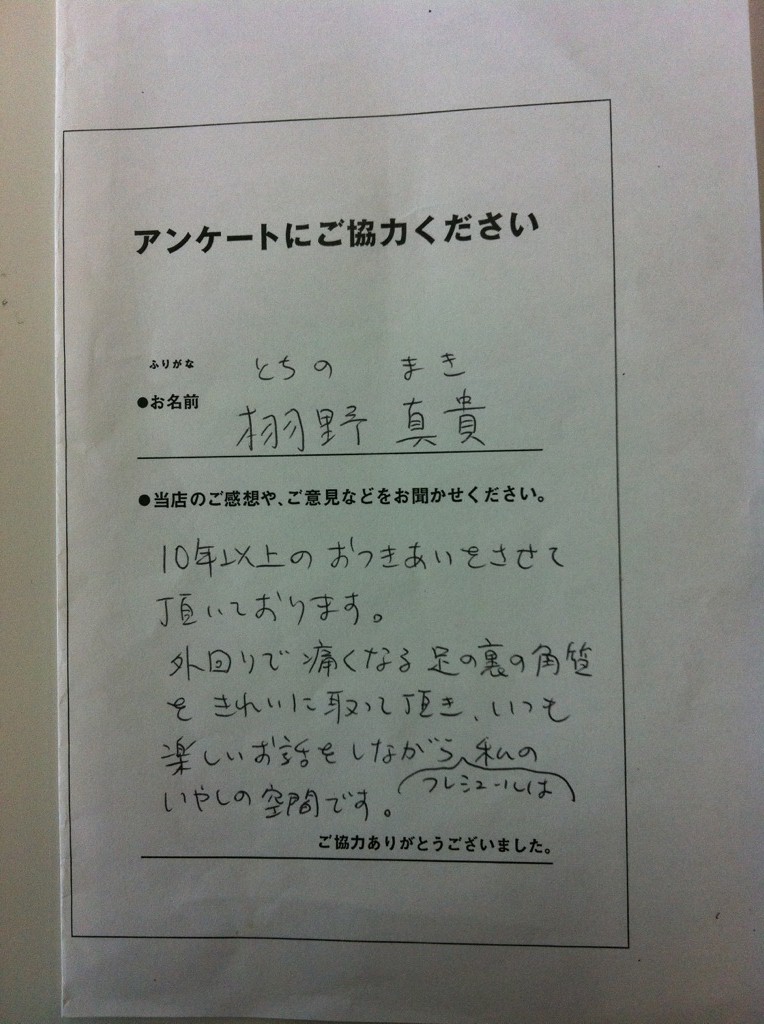 アンケートにご協力ください
ふりがな とちの まき
●お名前 栩野 真貴
●当店のご感想や、ご意見などをお聞かせください。
10年以上の おつきあいをさせて
頂いております。
外回りで 痛くなる 足の裏の角質
を きれいに取って頂き、いつも
楽しいお話をしながら 私の
フレシュールは
いやしの空間です。
ご協力ありがとうございました。